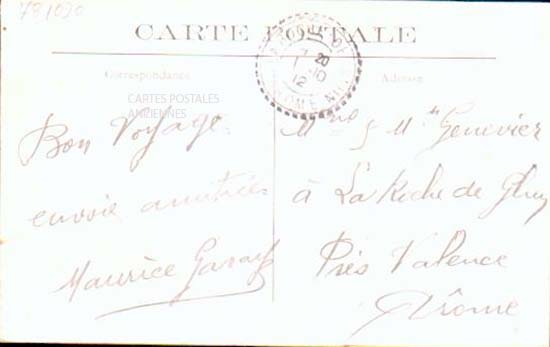 781020
CARTE POSTALE
Correspondance
Adresse
CARTES POSTALES
ANCIENNES
20
12
Bon Voyage
envoie amitiés
Maurice
Mme & Mr Genevier
à La Roche de Glun
Près Valence
Drôme